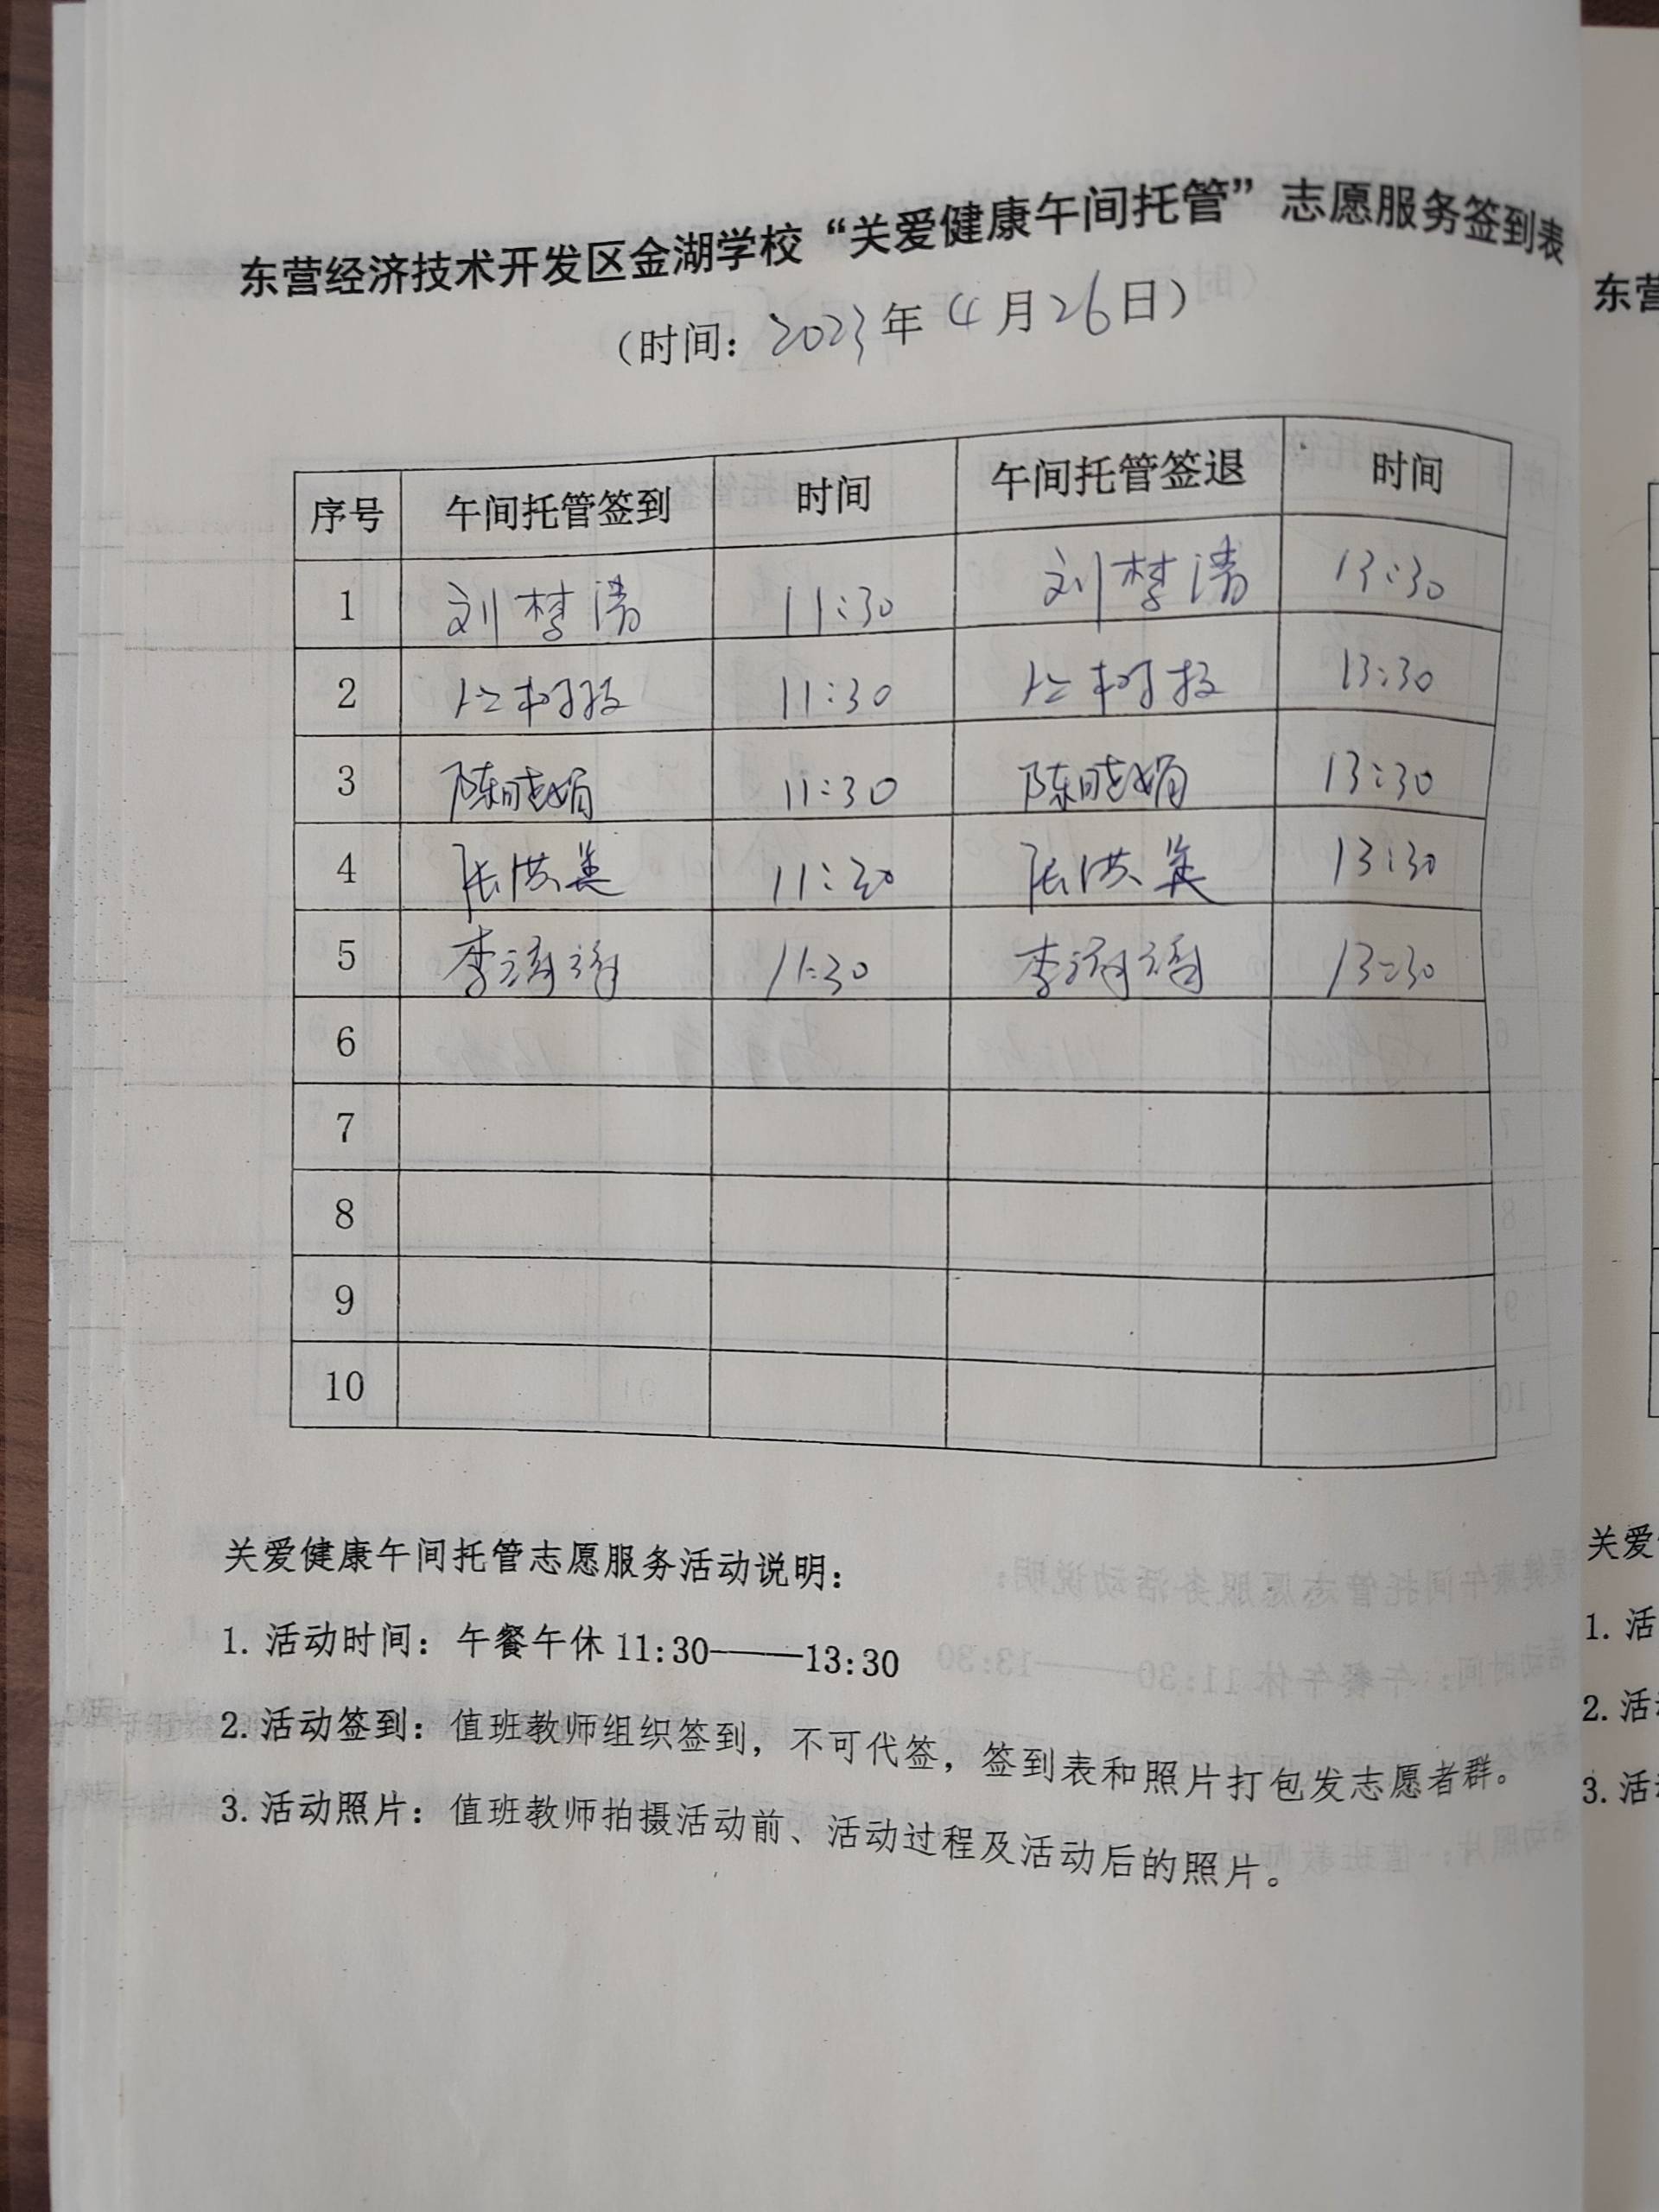 东营经济技术开发区金湖学校“关爱健康午间托管”志愿服务签到表
（时间：2023年4月26日）
序号 午间托管签到 时间 午间托管签退 时间
1 刘梦清 11:30 刘梦清 13:30
2 11:30 13:30
3 陈晓娟 11:30 陈晓娟 13:30
4 张洪英 11:30 张洪英 13:30
5 李 11:30 李 13:30
6
7
8
9
10
关爱健康午间托管志愿服务活动说明：
1. 活动时间：午餐午休 11:30——13:30
2. 活动签到：值班教师组织签到，不可代签，签到表和照片打包发志愿者群。
3. 活动照片：值班教师拍摄活动前、活动过程及活动后的照片。
东营
关爱
1. 活
2. 活
3. 活